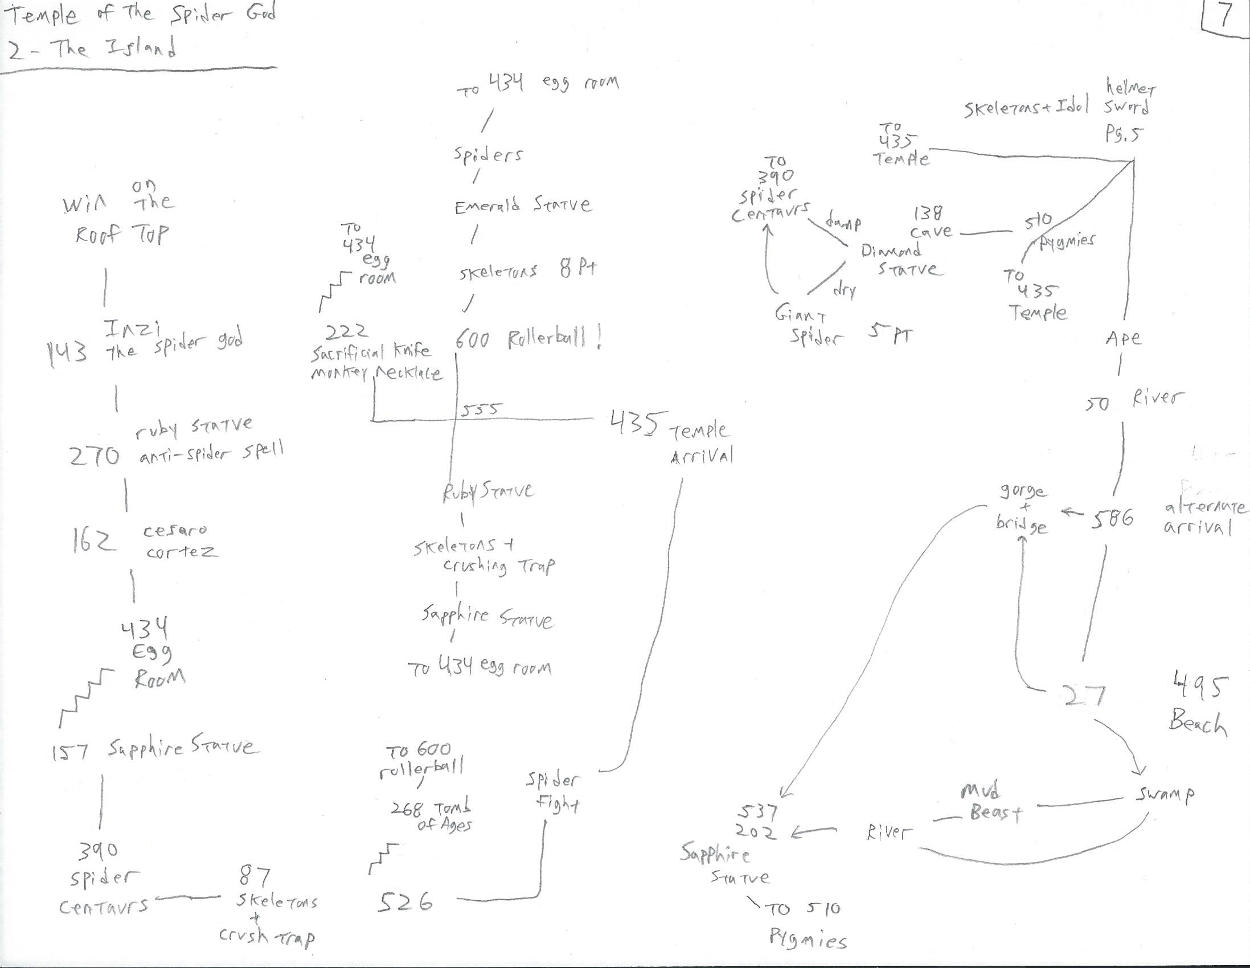 Temple of The Spider God
2 - The Island
7
Win on
The
Roof Top
143 Inzi
The spider god
270 ruby statue
anti-spider spell
162 cesaro
cortez
434
Egg
Room
157 Sapphire Statue
390
Spider
Centaurs
87
Skeletons
+
Crush Trap
To 434 egg room
Spiders
Emerald Statue
Skeletons 8 Pt
600 Rollerball!
To
434
egg
room
222
Sacrificial Knife
monkey necklace
555
435 Temple
Arrival
Ruby Statue
Skeletons +
crushing Trap
Sapphire Statue
To 434 egg room
To 600
rollerball
268 Tomb
of Ages
526
Spider
Fight
Skeletons + Idol
helmet
sword
Pg. 5
To
435
Temple
To
390
Spider
Centaurs
damp
138
cave
510
Pygmies
Diamond
Statue
dry
Giant
Spider 5 PT
To
435
Temple
Ape
50 River
gorge
+
bridge
586 alternate
arrival
27
495
Beach
Swamp
Mud
Beast
River
537
202
Sapphire
Statue
To 510
Pygmies